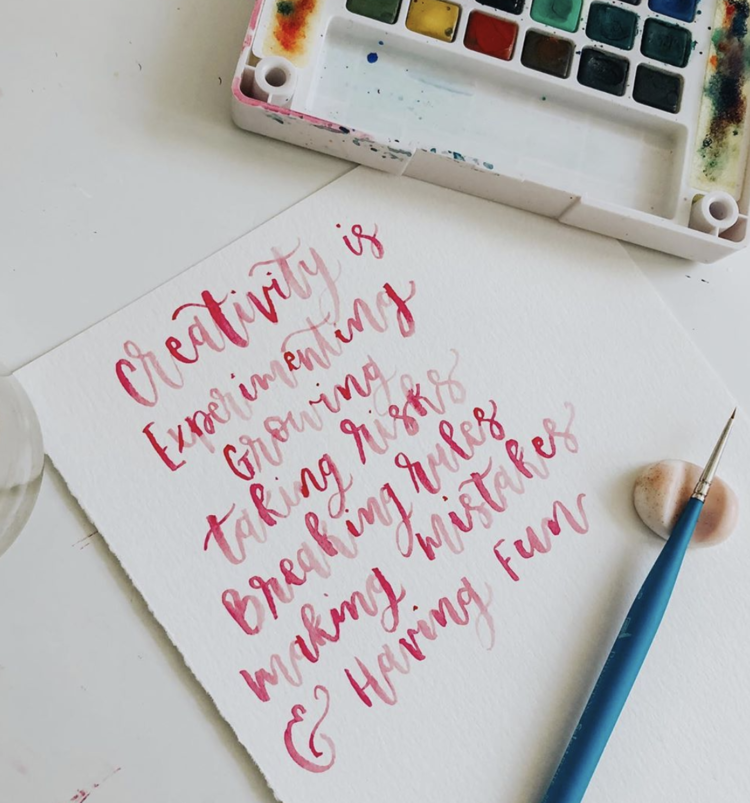 Creativity is
Experimenting
Growing
taking risks
Breaking rules
making mistakes
& Having Fun